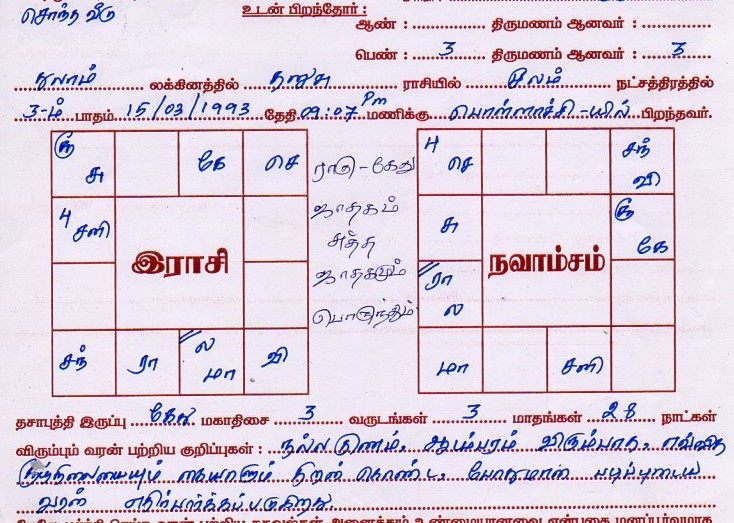 சொந்த வீடு
உடன் பிறந்தோர் :
ஆண் : ............ திருமணம் ஆனவர் : ............
பெண் : 3 திருமணம் ஆனவர் : 3
துலாம் லக்கினத்தில் தனுசு ராசியில் மூலம் நட்சத்திரத்தில்
3-ம் பாதம் 15/03/1993 தேதி 09:07 Pm மணிக்கு பொள்ளாச்சி-யில் பிறந்தவர்.
சூ சு கே செ
4 சனி
இராசி
சந் ரா ல மா வி
ராகு - கேது
ஜாதகம்
சுத்த
ஜாதகமும்
பொருந்தும்
4 செ சந் வி
சு சூ கே
நவாம்சம்
ரா ல
மா சனி
தசாபுத்தி இருப்பு கேது மகாதிசை 3 வருடங்கள் 3 மாதங்கள் 28 நாட்கள்
விரும்பும் வரன் பற்றிய குறிப்புகள் : நல்ல குணம், ஆடம்பரம் விரும்பாத, எவ்வித
சூழ்நிலையையும் கையாளும் திறன் கொண்ட, போதுமான படிப்புடைய
வரன் எதிர்பார்க்கப்படுகிறது.